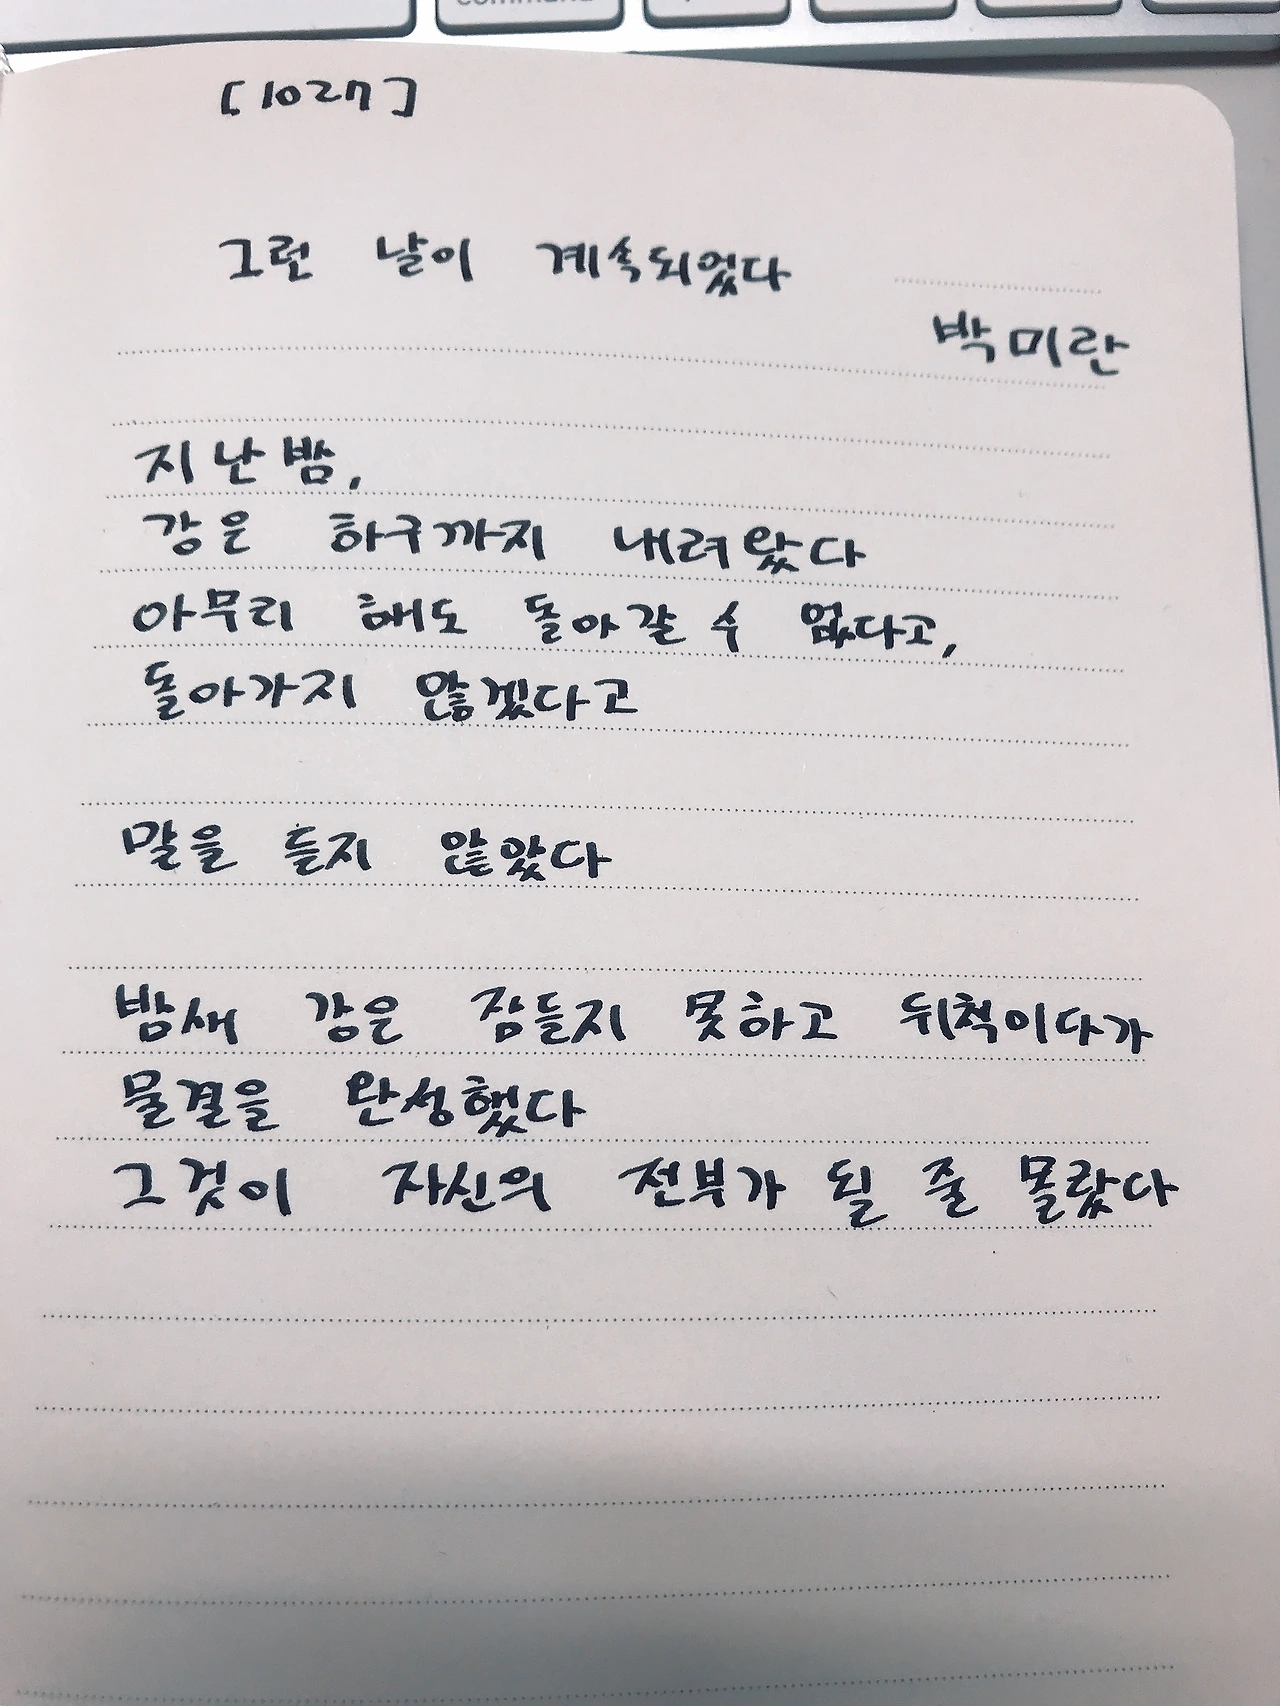 command
[1027]
그런 날이 계속되었다
박미란
지난밤,
강은 하구까지 내려왔다
아무리 해도 돌아갈 수 없다고,
돌아가지 않겠다고
말을 듣지 않았다
밤새 강은 잠들지 못하고 뒤척이다가
물결을 완성했다
그것이 자신의 전부가 될 줄 몰랐다